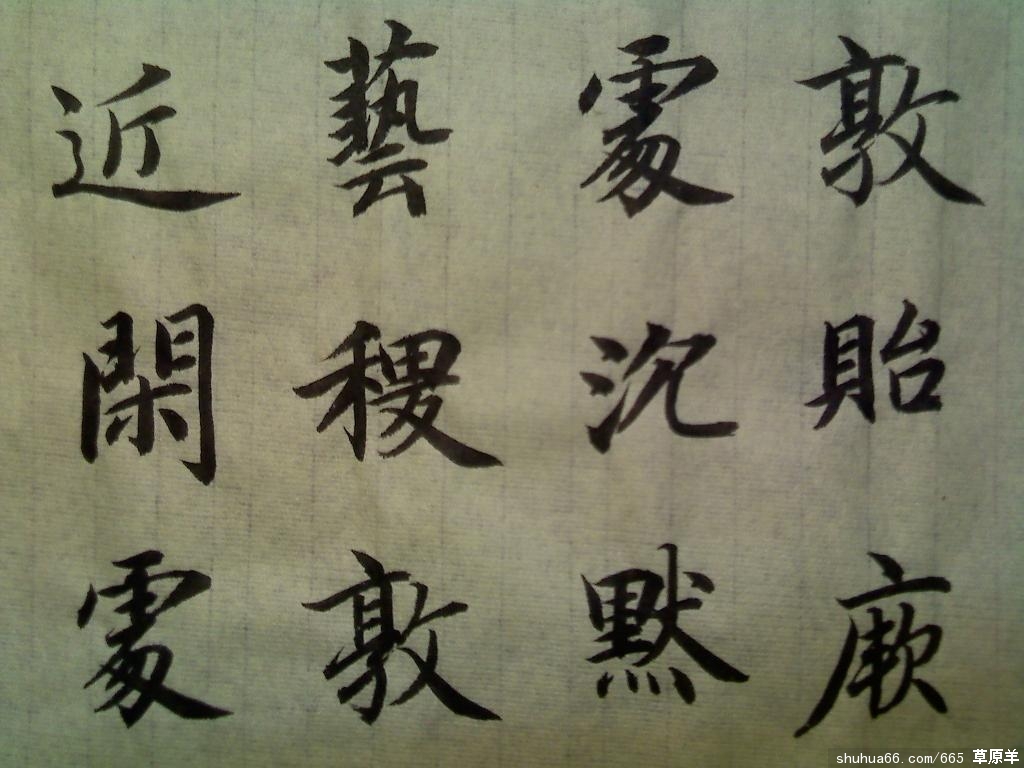 敦貽厥
處沉默
藝稷敦
近閑處
shuhua66.com/665 草原羊